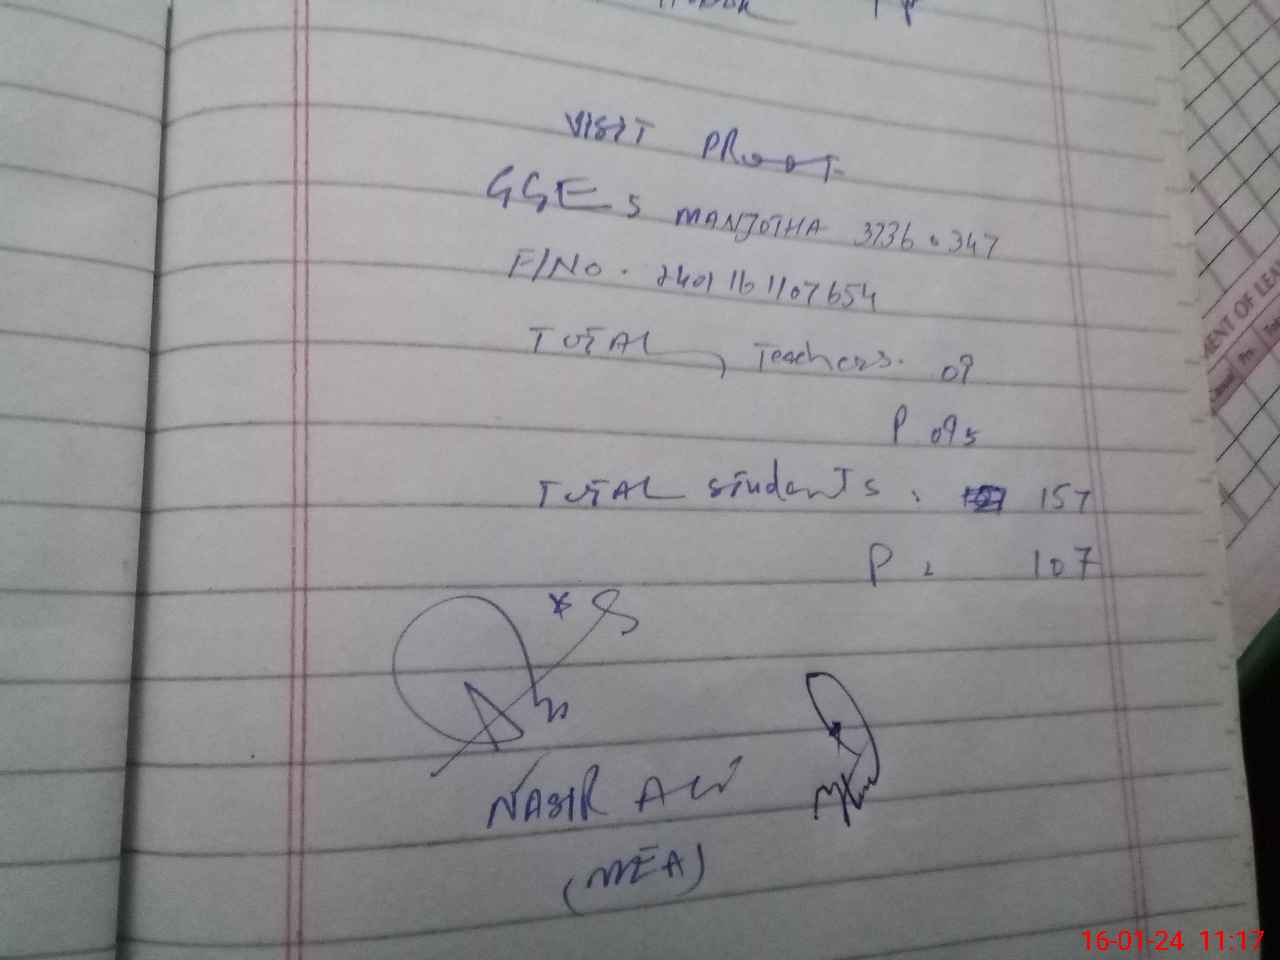 VISIT PROOF
GGES MANJOTHA 37360347
F/No. 2401161107654
TOTAL Teachers. 09
P 09
TOTAL students. 157
P. 107
NASIR ALI
(MEA)
MENT OF LEA
16-01-24 11:17